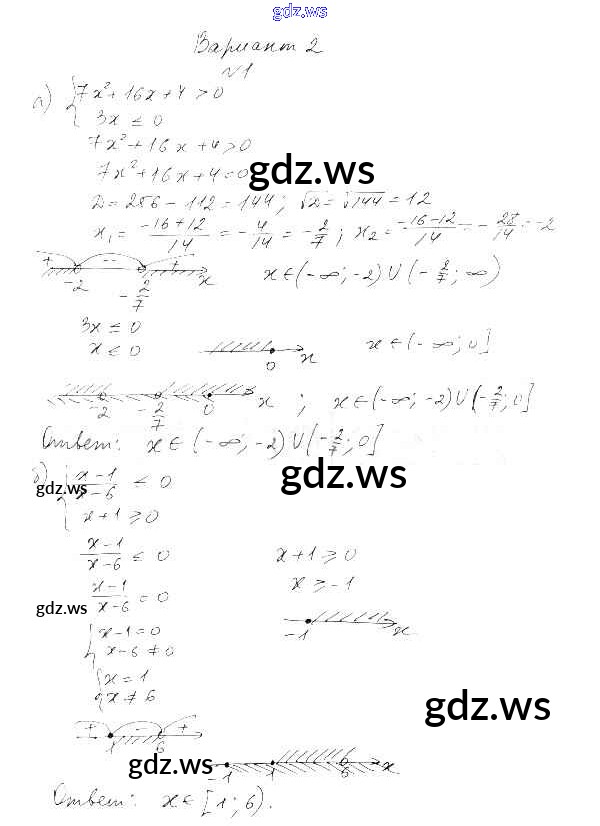 gdz.ws
Вариант 2
№1
а) { 7x²+16x+4>0
3x ≤ 0
7x²+16x+4>0
7x²+16x+4=0
gdz.ws
D=256-112=144; √D=√144=12
x₁=(-16+12)/14=-4/14=-2/7; x₂=(-16-12)/14=-28/14=-2
+ -- +
-2 -2/7 x
x∈(-∞;-2)∪(-2/7;∞)
3x ≤ 0
x ≤ 0
0 x
x∈(-∞;0]
-2 -2/7 0 x ; x∈(-∞;-2)∪(-2/7;0]
Ответ: x∈(-∞;-2)∪(-2/7;0]
gdz.ws
б) { (x-1)/(x-6) ≤ 0
gdz.ws
x+1 ≥ 0
(x-1)/(x-6) ≤ 0
x+1 ≥ 0
(x-1)/(x-6) = 0
x ≥ -1
gdz.ws
-1 x
{ x-1=0
x-6≠0
{ x=1
x≠6
gdz.ws
+ - +
1 6
gdz.ws
-1 1 6 x
Ответ: x∈[1;6).